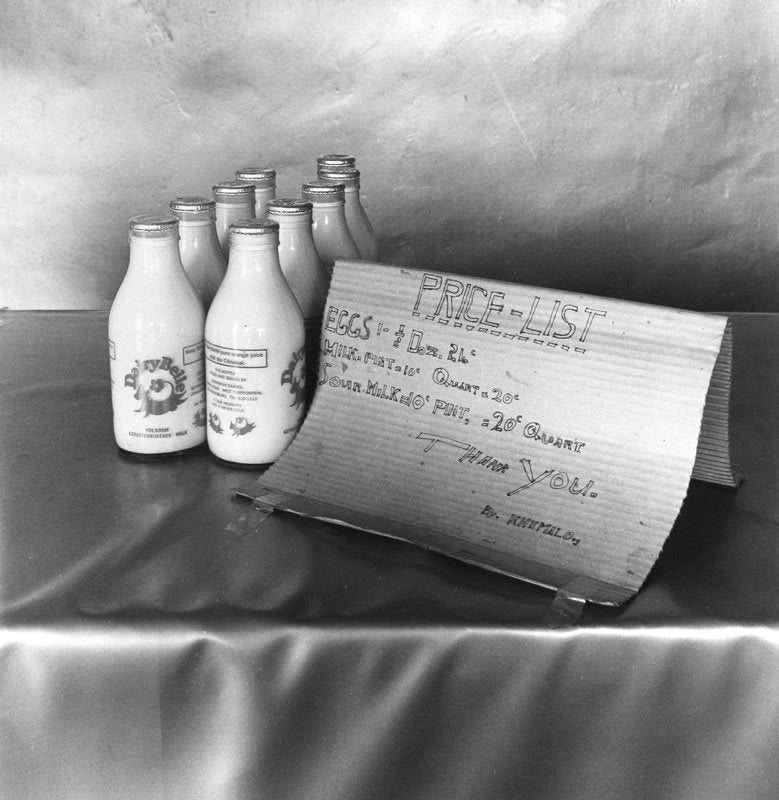 PRICE-LIST
EGGS :- ½ Doz. 21c
MILK. PINT = 10c QUART = 20c
SOUR. MILK = 10c PINT, = 20c QUART
THANK YOU.
By. KHUMALO.
DairyBelle
VOLROOM
GEPASTEURISEERDE MELK
pure orange juice
THIS BOTTLE
DairyBelle